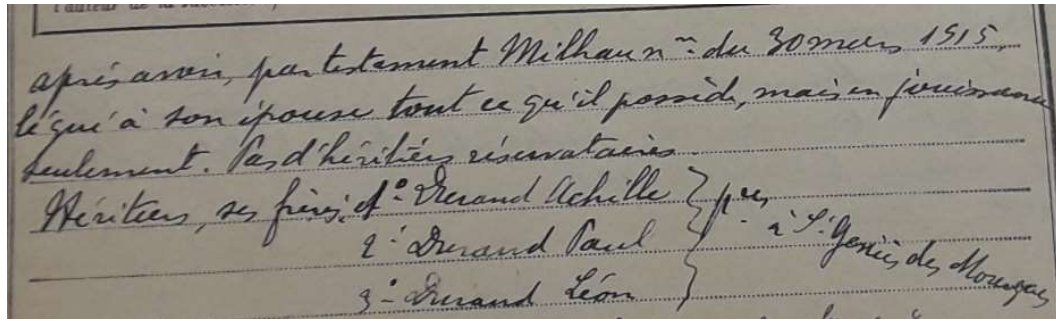 l'auteur de la succession,
après avoir, par testament Milhau nre du 30 mars 1915,
légué à son épouse tout ce qu'il possède, mais en jouissance
seulement. Pas d'héritiers réservataires.
Héritiers, ses frères, 1° Durand Achille
2° Durand Paul
3° Durand Léon
pres à St Geniès des Mourgues